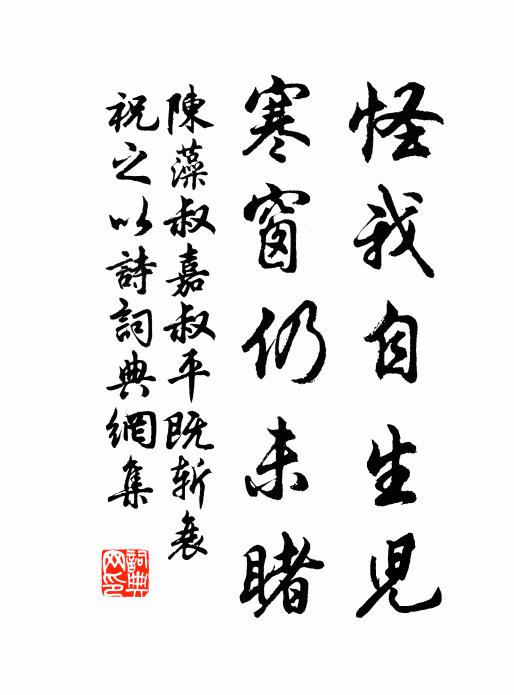 怪我自生児
寒窗仍未睹
陳藻叔嘉叔平既斬衰
祝之以詩詞典網集
詞典網印